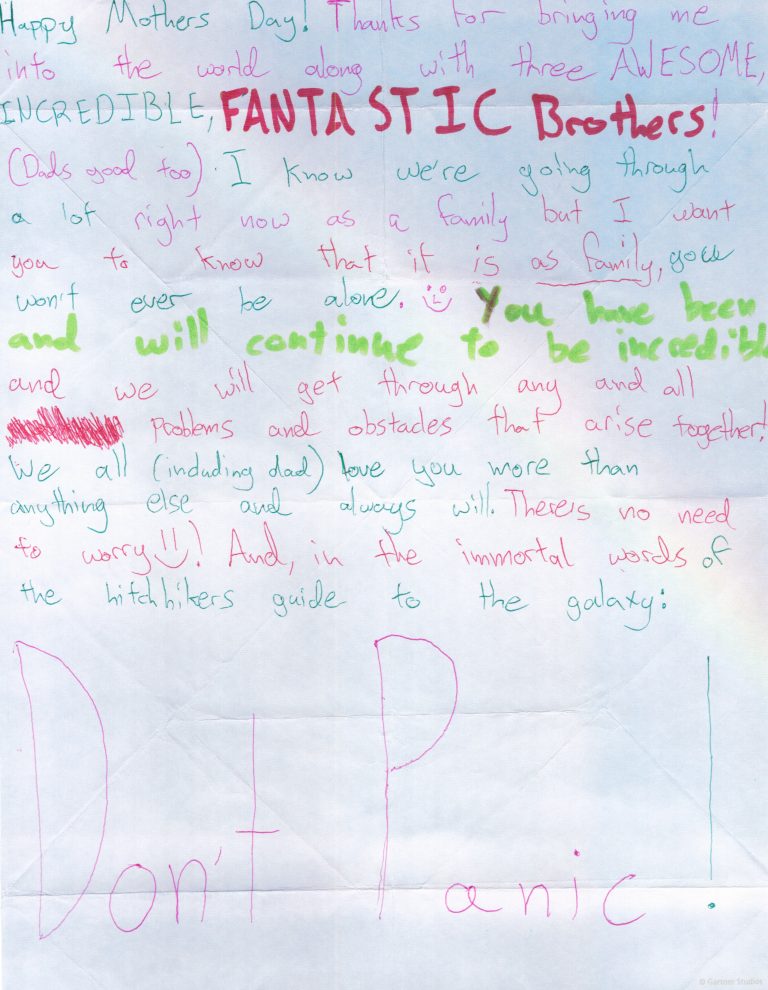 Happy Mothers Day! Thanks for bringing me
into the world along with three AWESOME,
INCREDIBLE, FANTASTIC Brothers!
(Dads good too). I know we're going through
a lot right now as a family but I want
you to know that it is as family, you
won't ever be alone. You have been
and will continue to be incredible
and we will get through any and all
problems and obstacles that arise together!
We all (including dad) love you more than
anything else and always will. Theres no need
to worry! And, in the immortal words of
the hitchhikers guide to the galaxy:
Don't Panic!
© Gartner Studios